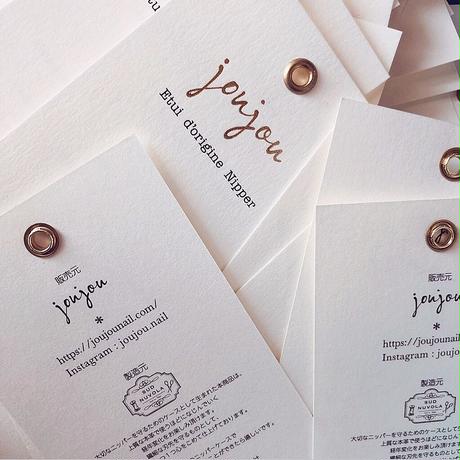 joujou
Etui d'origine Nipper
販売元
joujou
*
https://joujounail.com/
Instagram : joujou.nail
製造元
SUD
NUVOLA
大切なニッパーを守るためのケースとして生まれた本商品は、
上質な本革で使うほどになじんでいく
経年変化をお楽しみ頂けます。
繊細な刃先を守るものとして、
1つ1つ心をこめて仕上げております。
ニッパーケースで
ことができたら嬉しいです。
販売元
joujou
*
https://joujounail
Instagram : joujou
製造元
SUD
NUVOLA
大切なニッパーを守るためのケースとして生
上質な本革で使うほどになじん
経年変化をお楽しみ頂
繊細な刃先を守るも